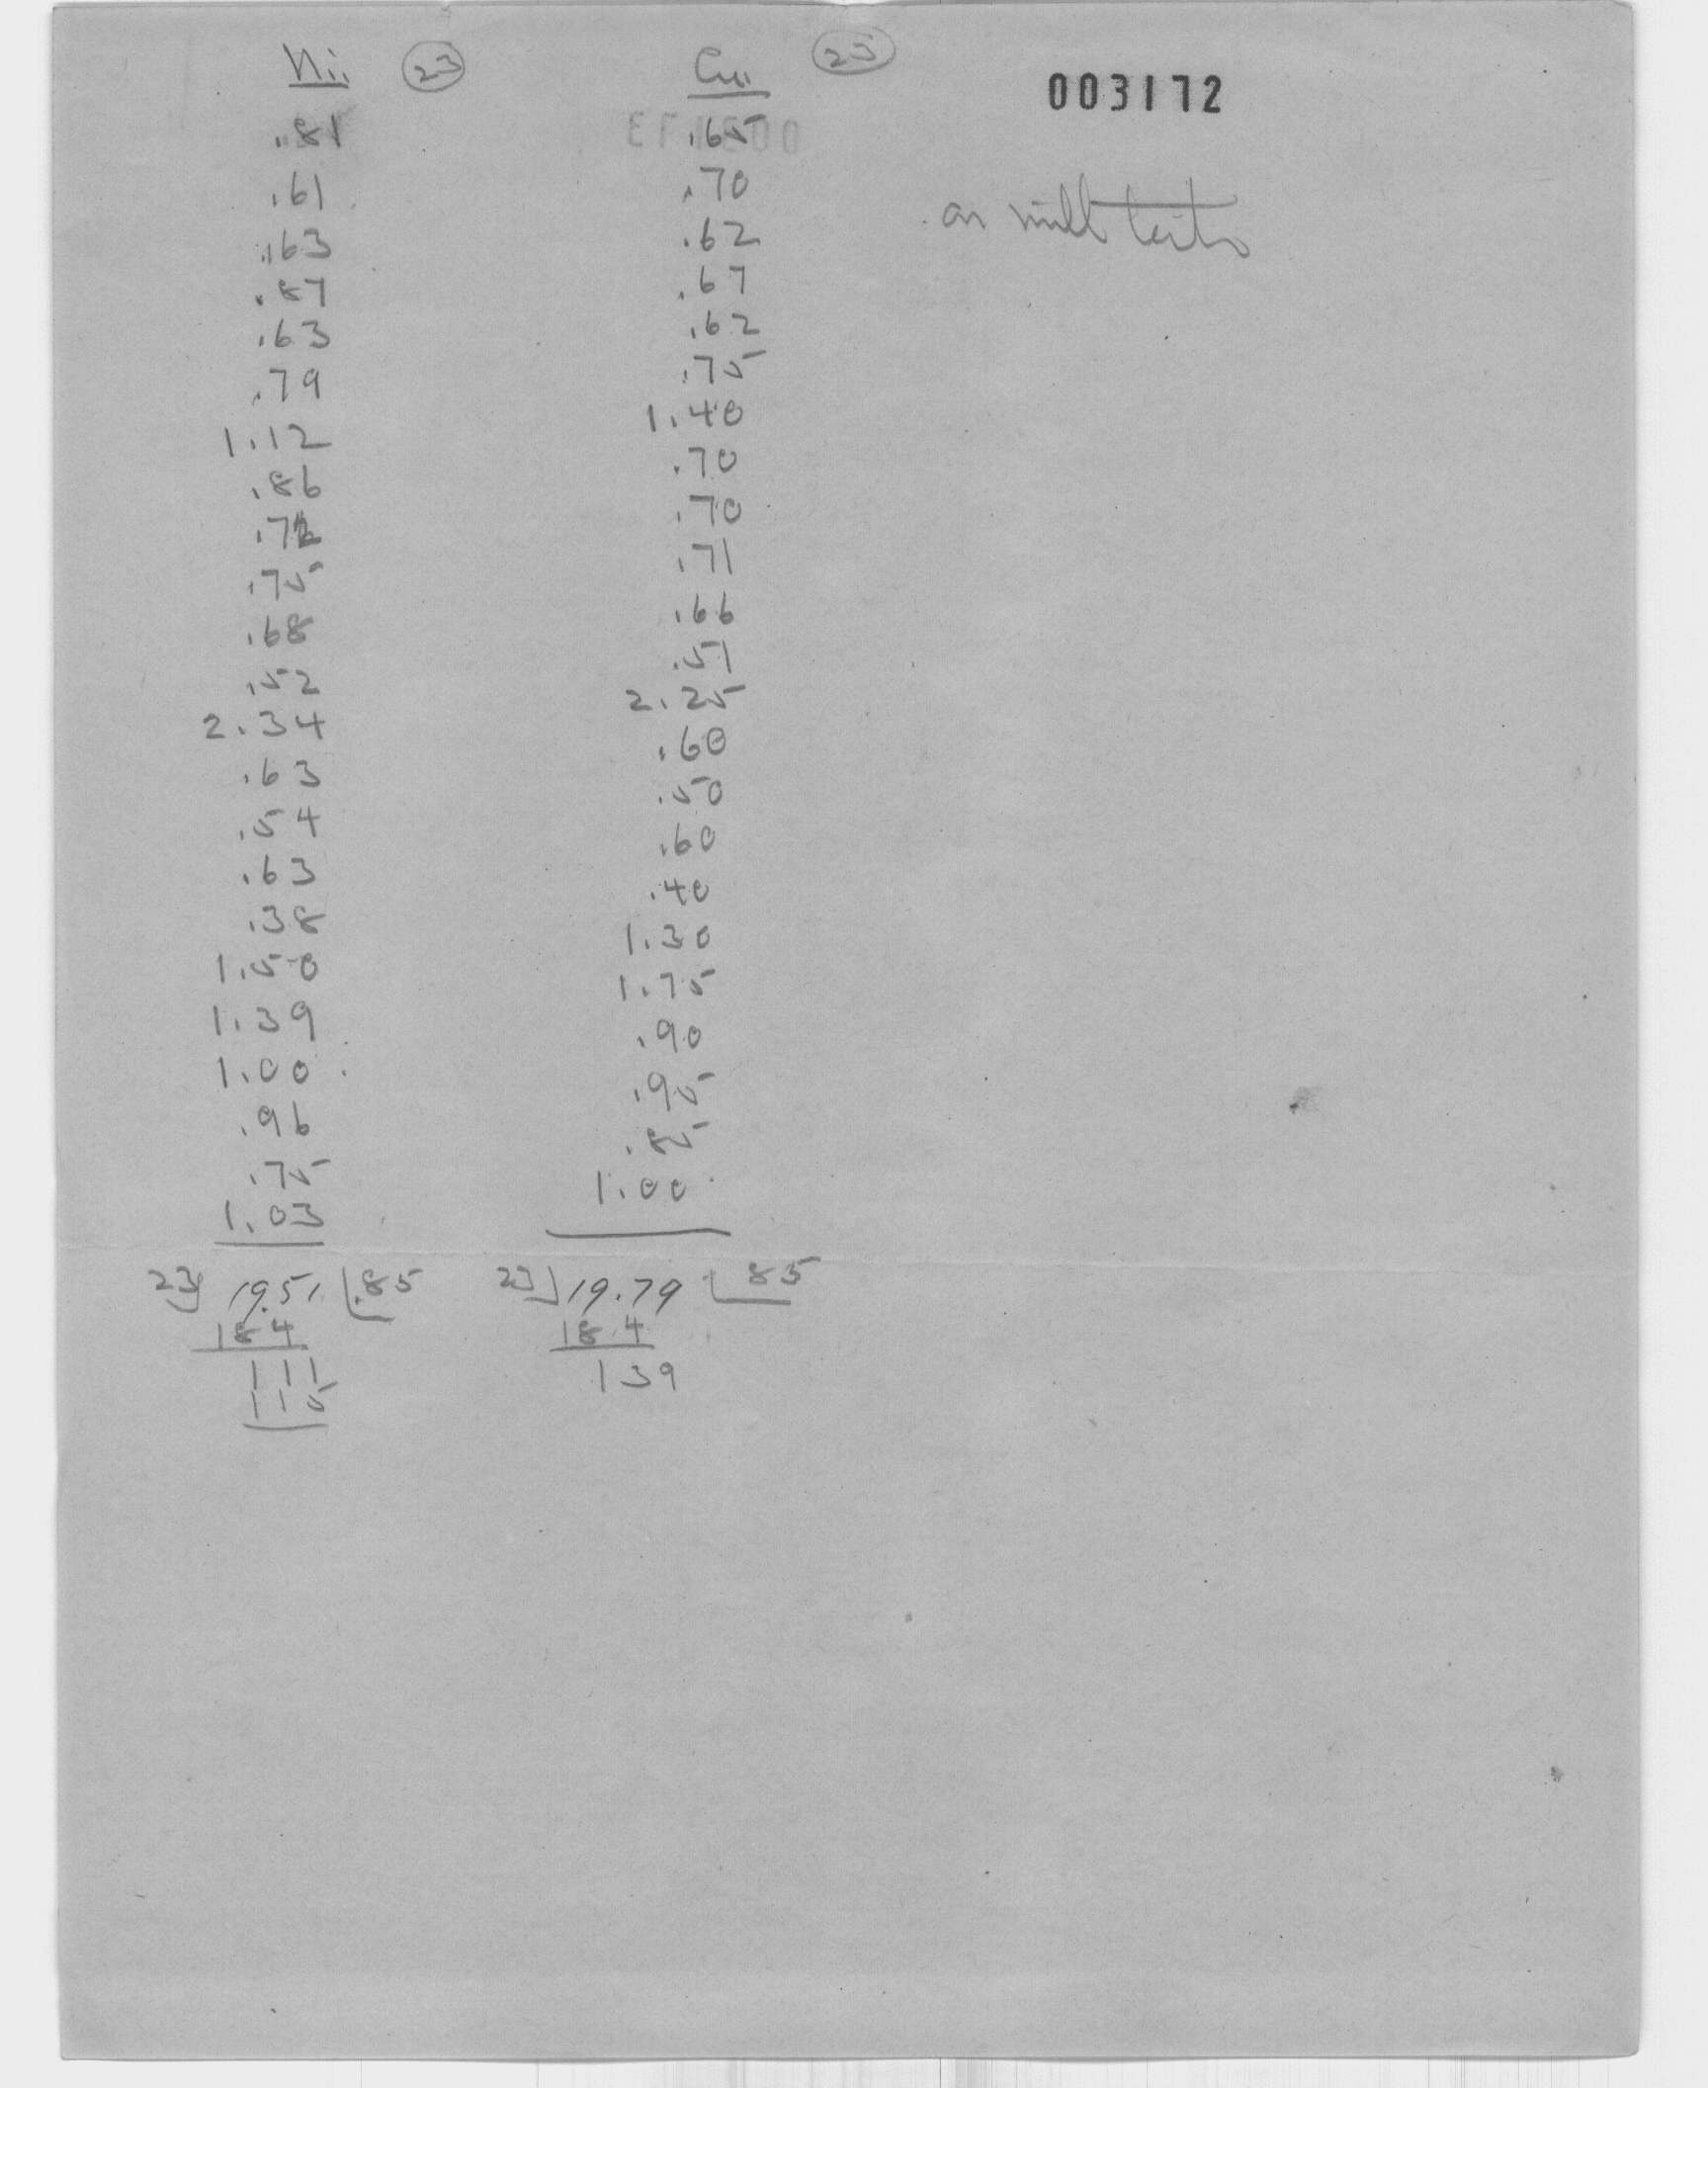 Ni. 23 Cu. 23
003172
.81 .65
.61 .70
on mill tests
.63 .62
.87 .67
.63 .62
.79 .75
1.12 1.40
.86 .70
.72 .70
.75 .71
.68 .66
.52 .51
2.34 2.25
.63 .60
.54 .50
.63 .60
.38 .40
1.50 1.30
1.39 1.75
1.00 .90
.96 .95
.75 .85
1.03 1.00
23 19.51 .85 23 19.79 85
18.4 18.4
111 139
115